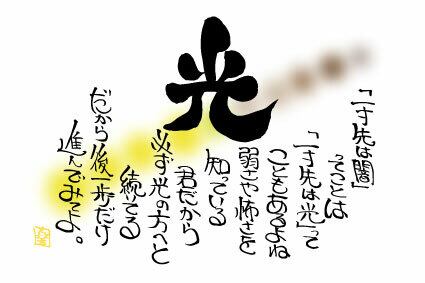 光
「一寸先は闇」
ってことは
「一寸先は光」って
こともあるよね
弱さや怖さを
知っている
君だから
必ず光の方へと
続いてる
だから後一歩だけ
進んでみてよ。